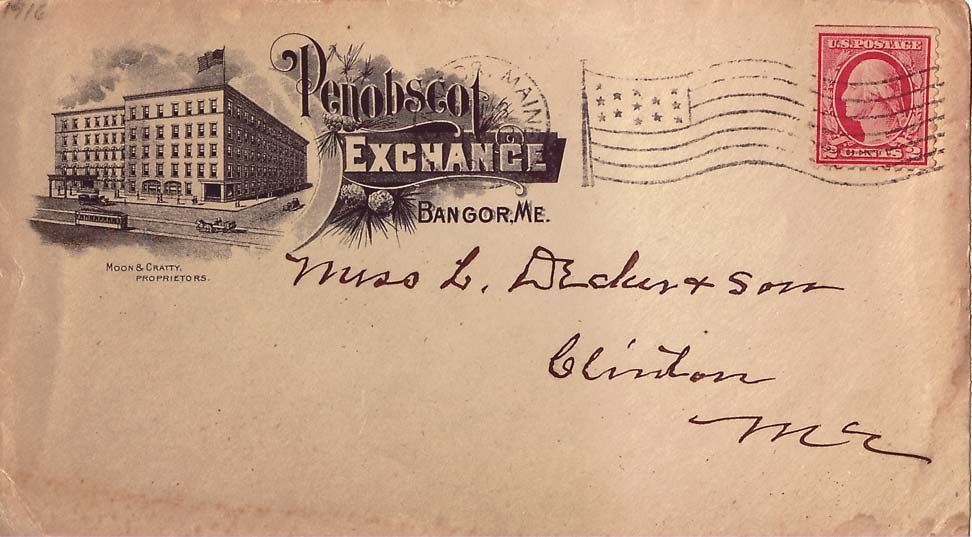 1916
Penobscot
EXCHANGE
BANGOR, ME.
MOON & CRATTY,
PROPRIETORS.
MAINE
U.S. POSTAGE
2 CENTS 2
L. Decker & Son
Clinton
Me